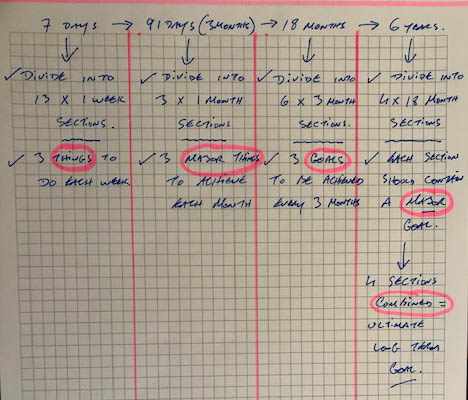 7 DAYS → 91 DAYS (3 MONTHS) → 18 MONTHS → 6 YEARS.
✓ DIVIDE INTO
13 X 1 WEEK
SECTIONS.
✓ 3 THINGS TO
DO EACH WEEK
✓ DIVIDE INTO
3 X 1 MONTH
SECTIONS
✓ 3 MAJOR THINGS
TO ACHIEVE
EACH MONTH
✓ DIVIDE INTO
6 X 3 MONTH
SECTIONS.
✓ 3 GOALS
TO BE ACHIEVED
EVERY 3 MONTHS
✓ DIVIDE INTO
4 X 18 MONTH
SECTIONS
✓ EACH SECTION
SHOULD CONTAIN
A MAJOR
GOAL.
4 SECTIONS
COMBINED =
ULTIMATE
LONG TERM
GOAL.